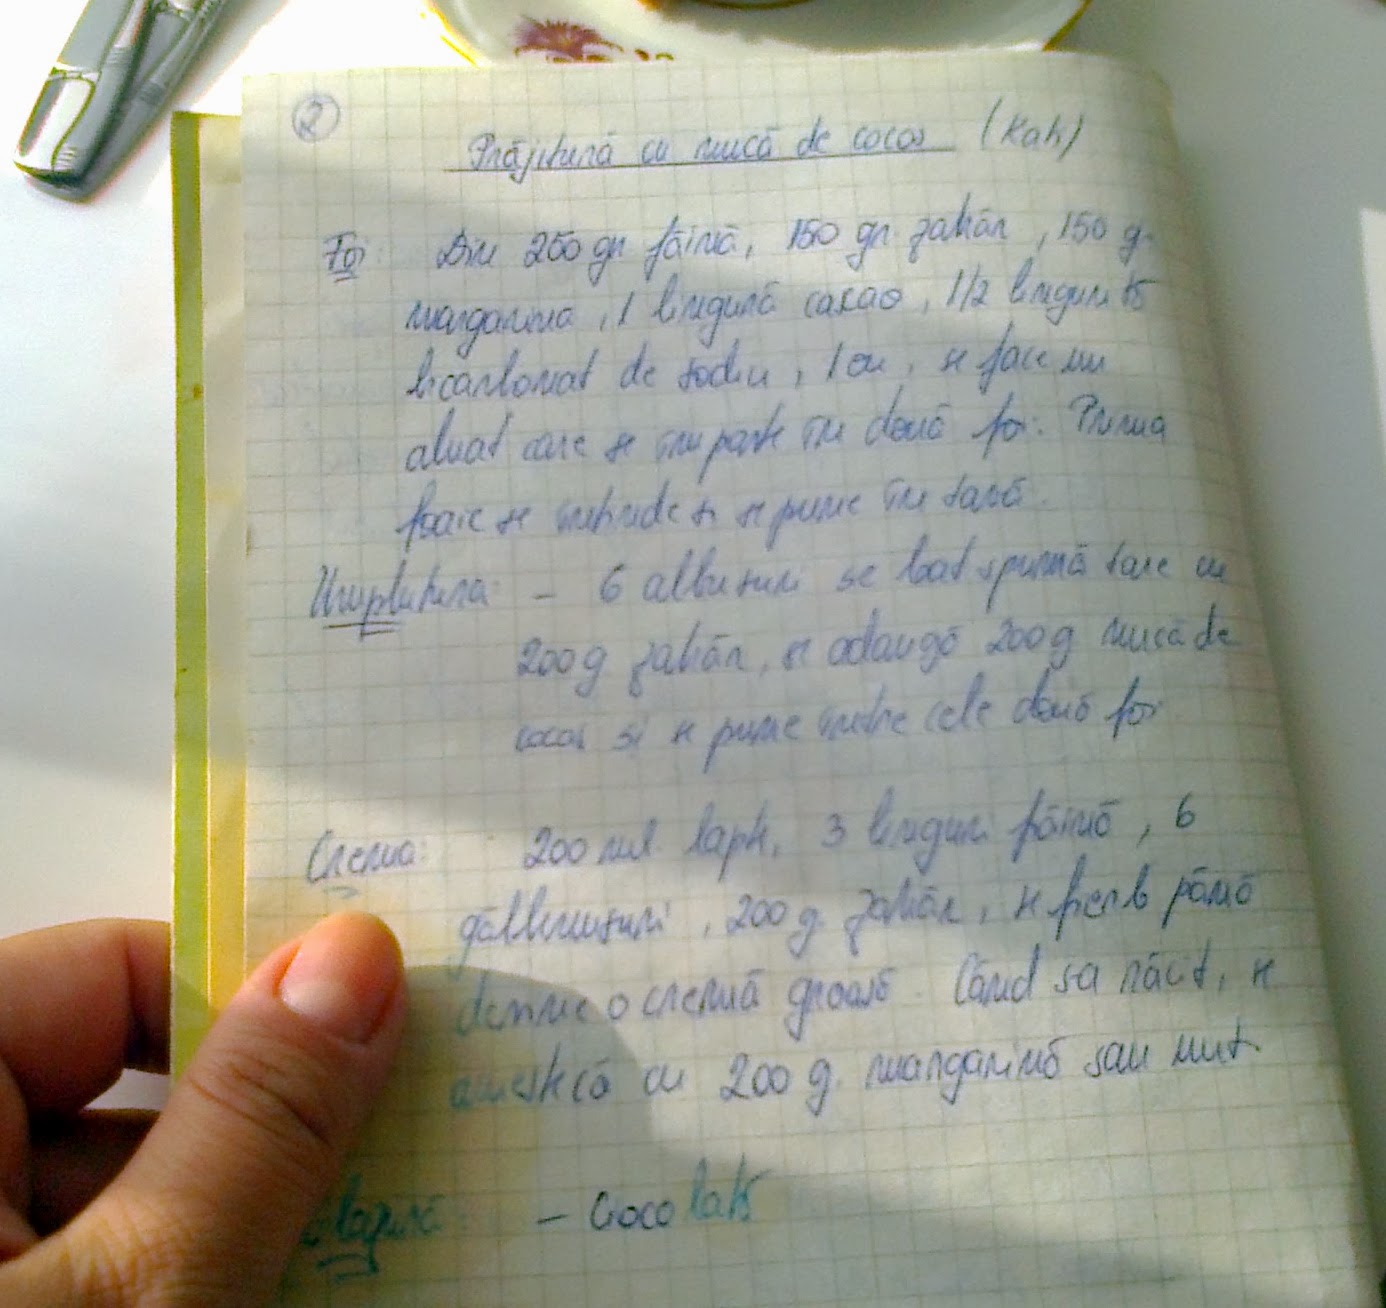 2
Prăjitură cu nucă de cocos (Kati)
Foi: Din 250 gr. făină, 150 gr. zahăr, 150 g.
margarina, 1 lingură cacao, 1/2 linguriță
bicarbonat de sodiu, 1 ou, se face un
aluat care se împarte în două foi. Prima
foaie se întinde și se pune în tavă.
Umplutura: - 6 albușuri se bat spumă tare cu
200 g zahăr, se adaugă 200 g nucă de
cocos și se pune între cele două foi
Crema: 200 ml lapte, 3 linguri făină, 6
gălbenușuri, 200 g. zahăr, se fierb până
devine o cremă groasă. Când sa răcit, se
amestecă cu 200 g. margarină sau unt.
Glazură: - Ciocolată